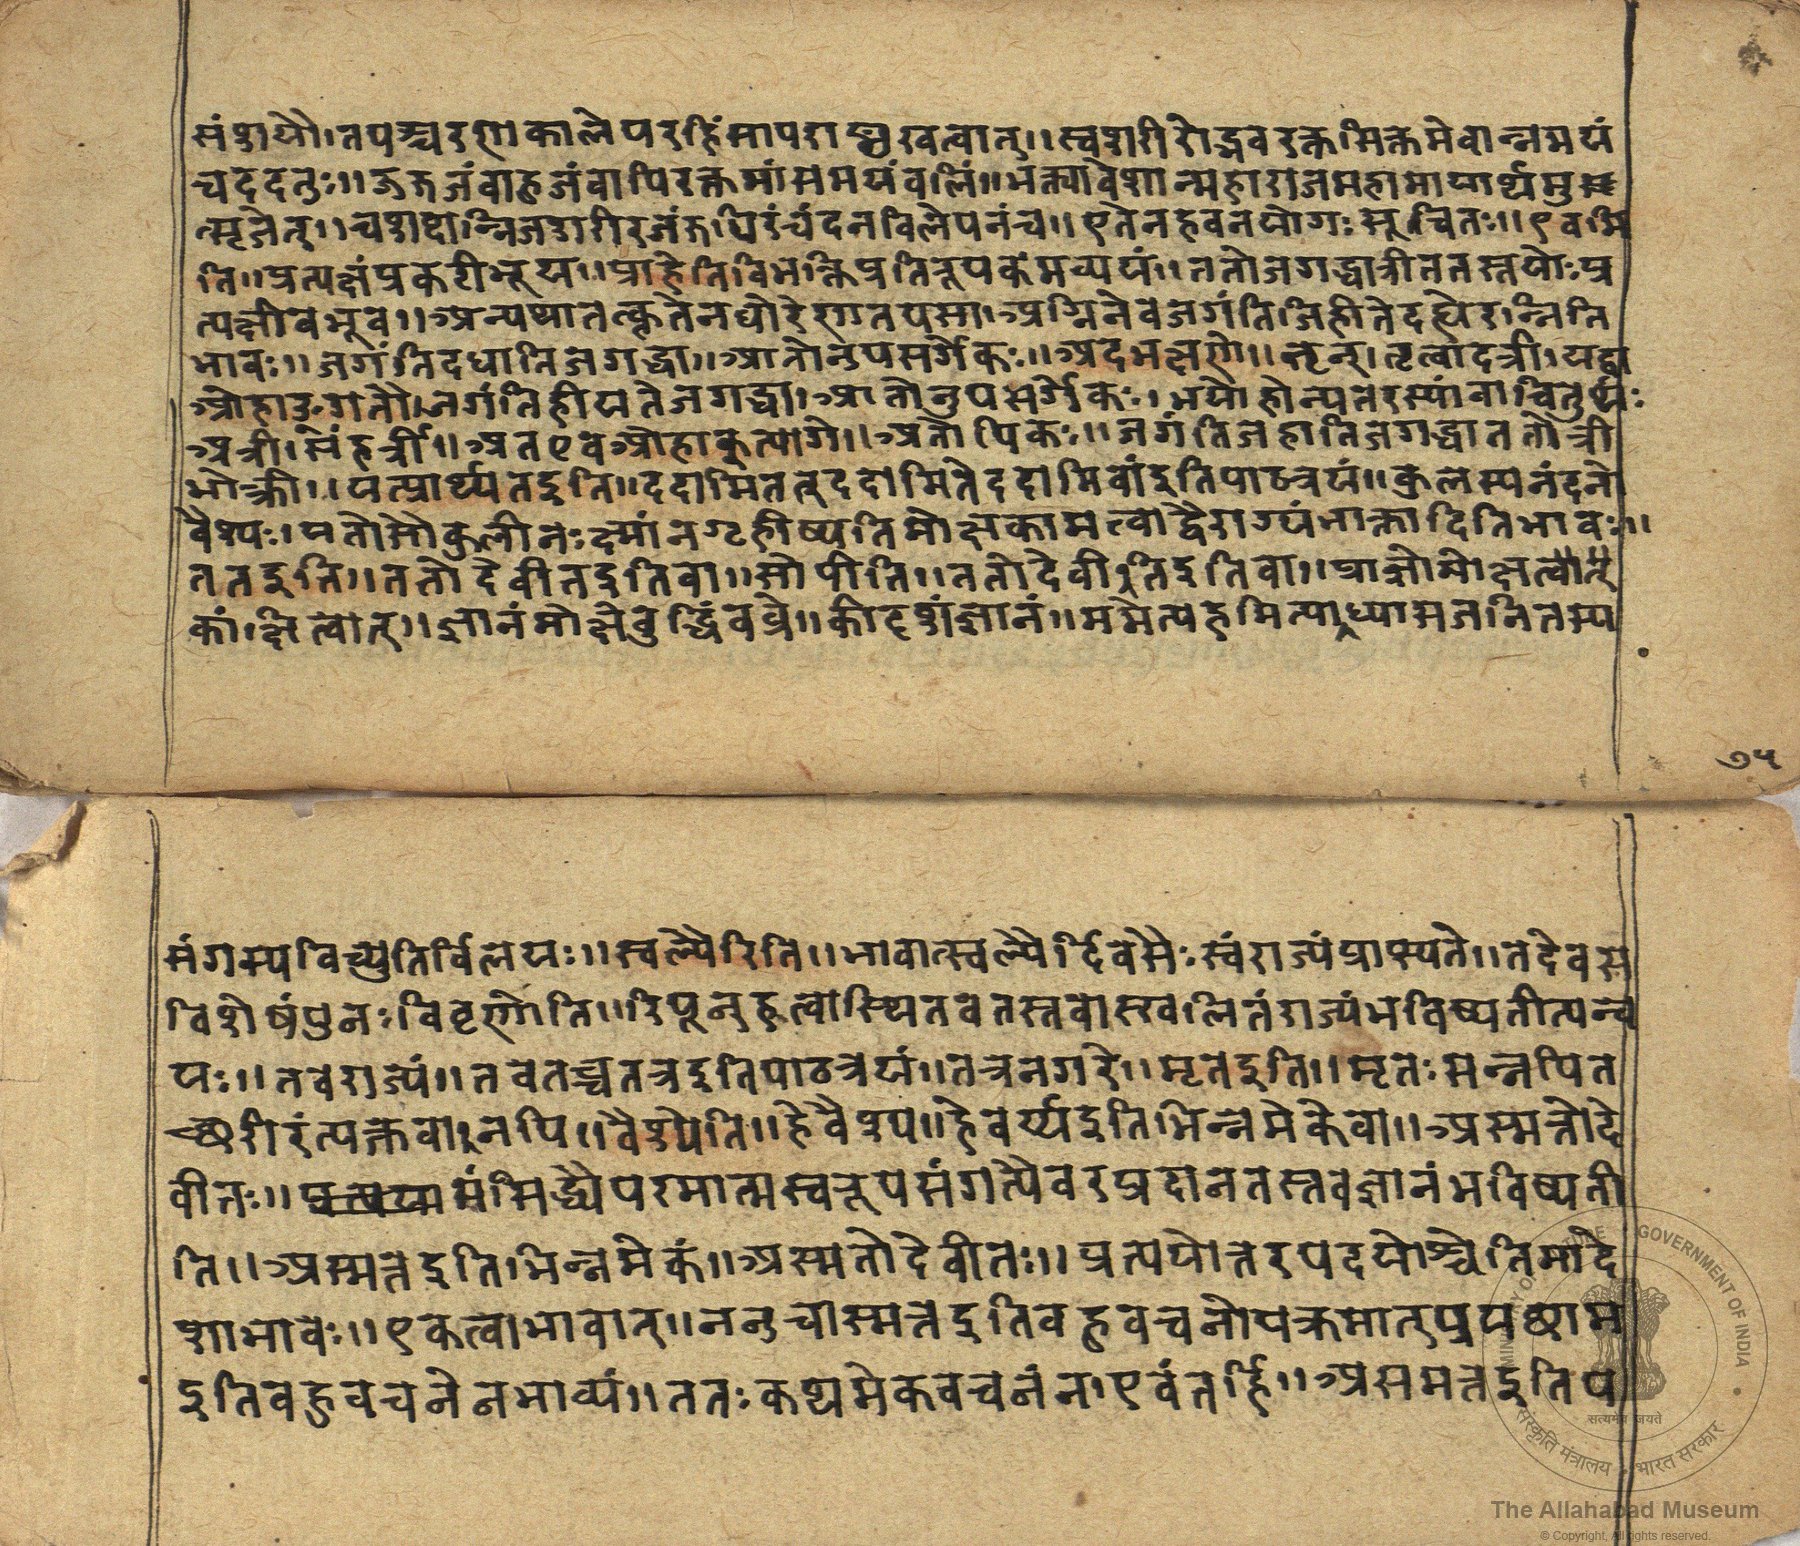 संशयौ। तपश्चरणकाले परहिंसापराङ्मुखत्वात्॥ स्वशरीरोद्भवरक्तसिक्तमेवान्नमयं
च ददतुः॥ ऊरुजं बाहुजं वापि रक्तमांसमयं वलिं॥ भक्त्यावेशान्महाराजमहामायार्थमु
त्सृजेत्॥ चशब्दान्निजशरीरजं रुधिरं चंदनविलेपनं च॥ एतेन हवनयोगः सूचितः॥ एवमि
ति॥ प्रत्यक्षं प्रकटीभूय॥ प्राहेति विभक्तिप्रतिरूपकमव्ययं॥ ततो जगद्धात्री ततस्तयोः प्र
त्यक्षीबभूव॥ अन्यथा तत्कृतेन घोरेण तपसा अग्निनेव जगंति जिहीते दह्येरन्निति
भावः॥ जगंति दधाति जगद्धा॥ आतोनुपसर्गे कः॥ अद भक्षणे॥ तृन्। तृत्वादत्री। यद्वा
ओहाङ् गतौ। जगंति हीयते जगद्धा। आतोनुपसर्गे कः। भयो होन्यतरस्यां वा चतुर्थः
अत्री। संहर्त्री॥ अत एव ओहाक् त्यागे॥ अतोपि कः॥ जगंति जहाति जगद्धा ततोत्री
भोक्त्री॥ यत्प्रार्थ्यत इति॥ ददामि तत् ददामि ते ददामि वां इति पाठत्रयं॥ कुलस्य नंदनो
वैश्यः। यतोसौ कुलीनः क्ष्मां न गृहीष्यति मोक्षकामत्वाद्वैराग्यभाक्त्वादिति भावः॥
तत इति॥ ततो देवी तत इति वा॥ सोपीति॥ ततो देवीति इति वा॥ प्राज्ञो मोक्षत्वात्
कांक्षित्वात्॥ ज्ञानं मोक्षे बुद्धिं वव्रे॥ कीदृशं ज्ञानं॥ ममेत्यहमित्यध्यासजनितस्य
७५
संगस्य विच्युतिर्विलयः॥ स्वल्पैरिति॥ भावात्स्वल्पैर्दिवसैः स्वं राज्यं प्राप्स्यते॥ तदेव स
विशेषं पुनः विवृणोति॥ रिपून् हत्वा स्थितवतस्तवास्खलितं राज्यं भविष्यतीत्यन्व
यः॥ तव राज्यं॥ तवेतच्च तत्र इति पाठत्रयं॥ तत्र नगरे॥ मृत इति॥ मृतः सन्नपि त
च्छरीरं त्यक्तवानपि॥ वैश्येति॥ हे वैश्य॥ हे वर्य्य इति भिन्नमेके वा॥ अस्मत्तो दे
वीतः॥ संसिद्ध्यै परमात्मस्वरूपसंगत्यै वरप्रदानतस्तव ज्ञानं भविष्यती
ति॥ अस्मत्त इति भिन्नमेकं॥ अस्मतो देवीतः॥ प्रत्ययोत्तरपदयोश्चेति मादे
शाभावः॥ एकत्वाभावात्॥ ननु चास्मत्त इति वहुवचनोपक्रमात् प्रयच्छाम
इति वहुवचनेन भाव्यं॥ ततः कथमेकवचनं न। एवं तर्हि॥ अस्मत्त इति प
MINISTRY OF CULTURE GOVERNMENT OF INDIA
सत्यमेव जयते
संस्कृति मंत्रालय भारत सरकार
The Allahabad Museum
© Copyright, All rights reserved.